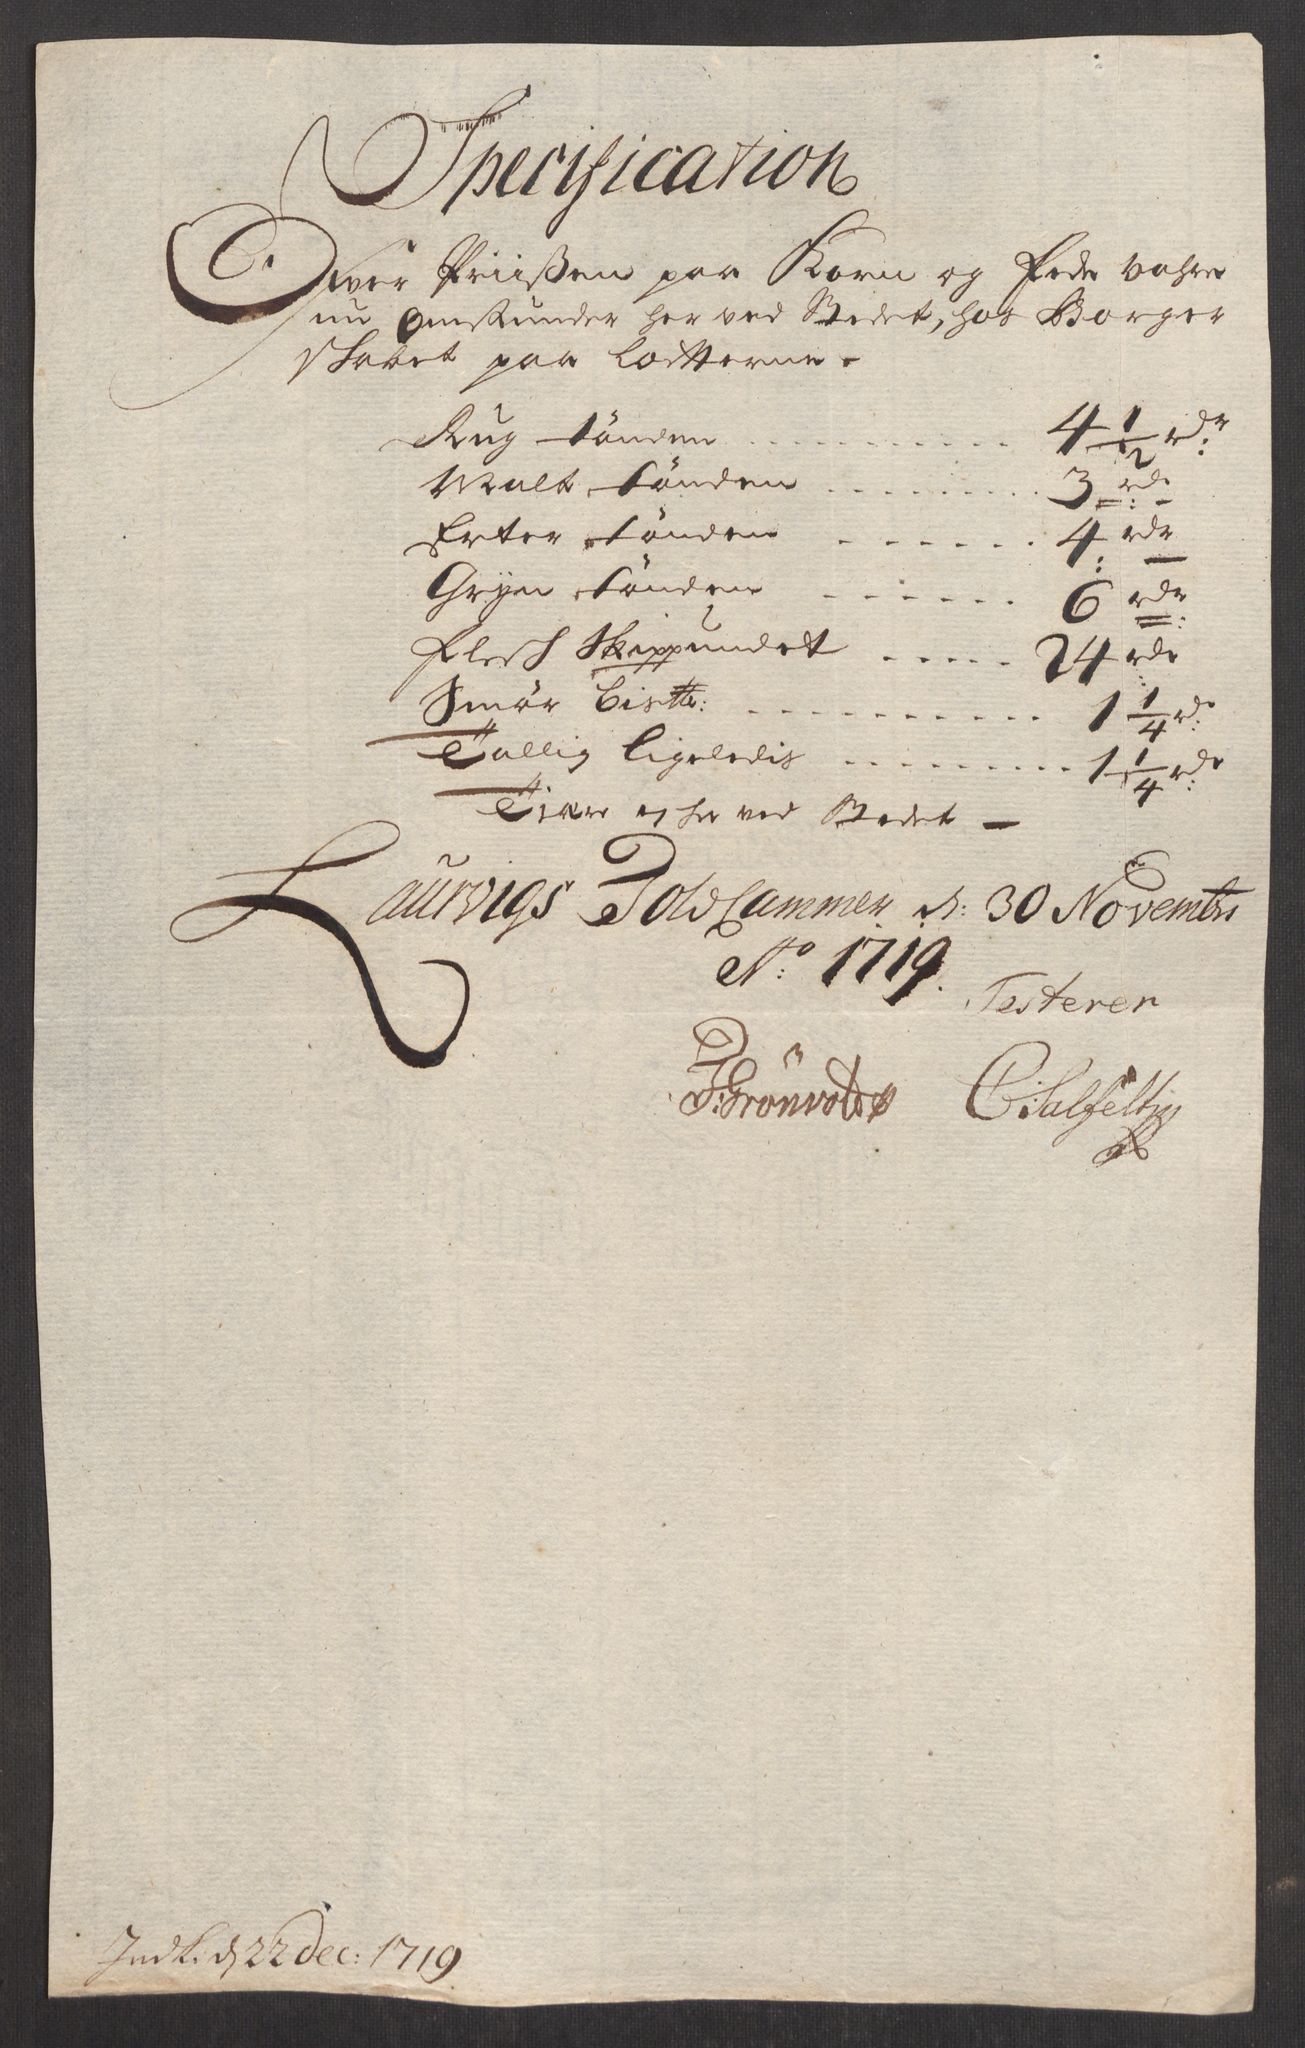 Specification
Over Priißen paa Korn og Fede vahre
nu Omstunder her ved Stedet, hos Borger
skabet paa Lodterne.
Rug tönden 4 1/2 rdr
Malt tönden 3 rdr
Erter tönden 4 rdr
Gryn tönden 6 rdr
Flesch Skippundet 24 rdr
Smör 1 1/4 rdr
Tallig ligeledis 1 1/4 rdr
Tiære ey her ved Stedet
Laurvigs Toldcammer d: 30 Novembris
Ao: 1719. Testerer
T: Grönvold C: Salfeldt
Indl: d 22 Dec: 1719